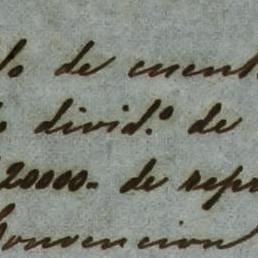 do de cuent
divid.º de
20000- de repr
Convencion